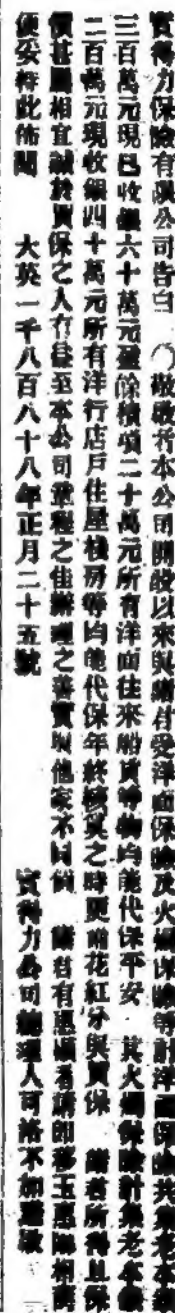 實得力保險有限公司告白 〇敬啟者本公司開設以來與諸君受洋面保險及火燭保險等計洋面保險共集老本銀
三百萬元現已收銀六十萬元盈餘積項二十萬元所有洋面往來船貨等物均能代保平安 其火燭保險計集老本銀
二百萬元現收銀四十萬元所有洋行店戶住屋棧房等均能代保年終核算之時更將花紅分與買保 諸君所得且保
價甚屬相宜誠於買保之人有益至本公司 理之佳辦理之善實與他家不同倘 諸君有惠顧者請即移玉惠臨相商
便妥特此佈聞 大英一千八百八十八年正月二十五號 實得力公司總理人可洛不加 啟